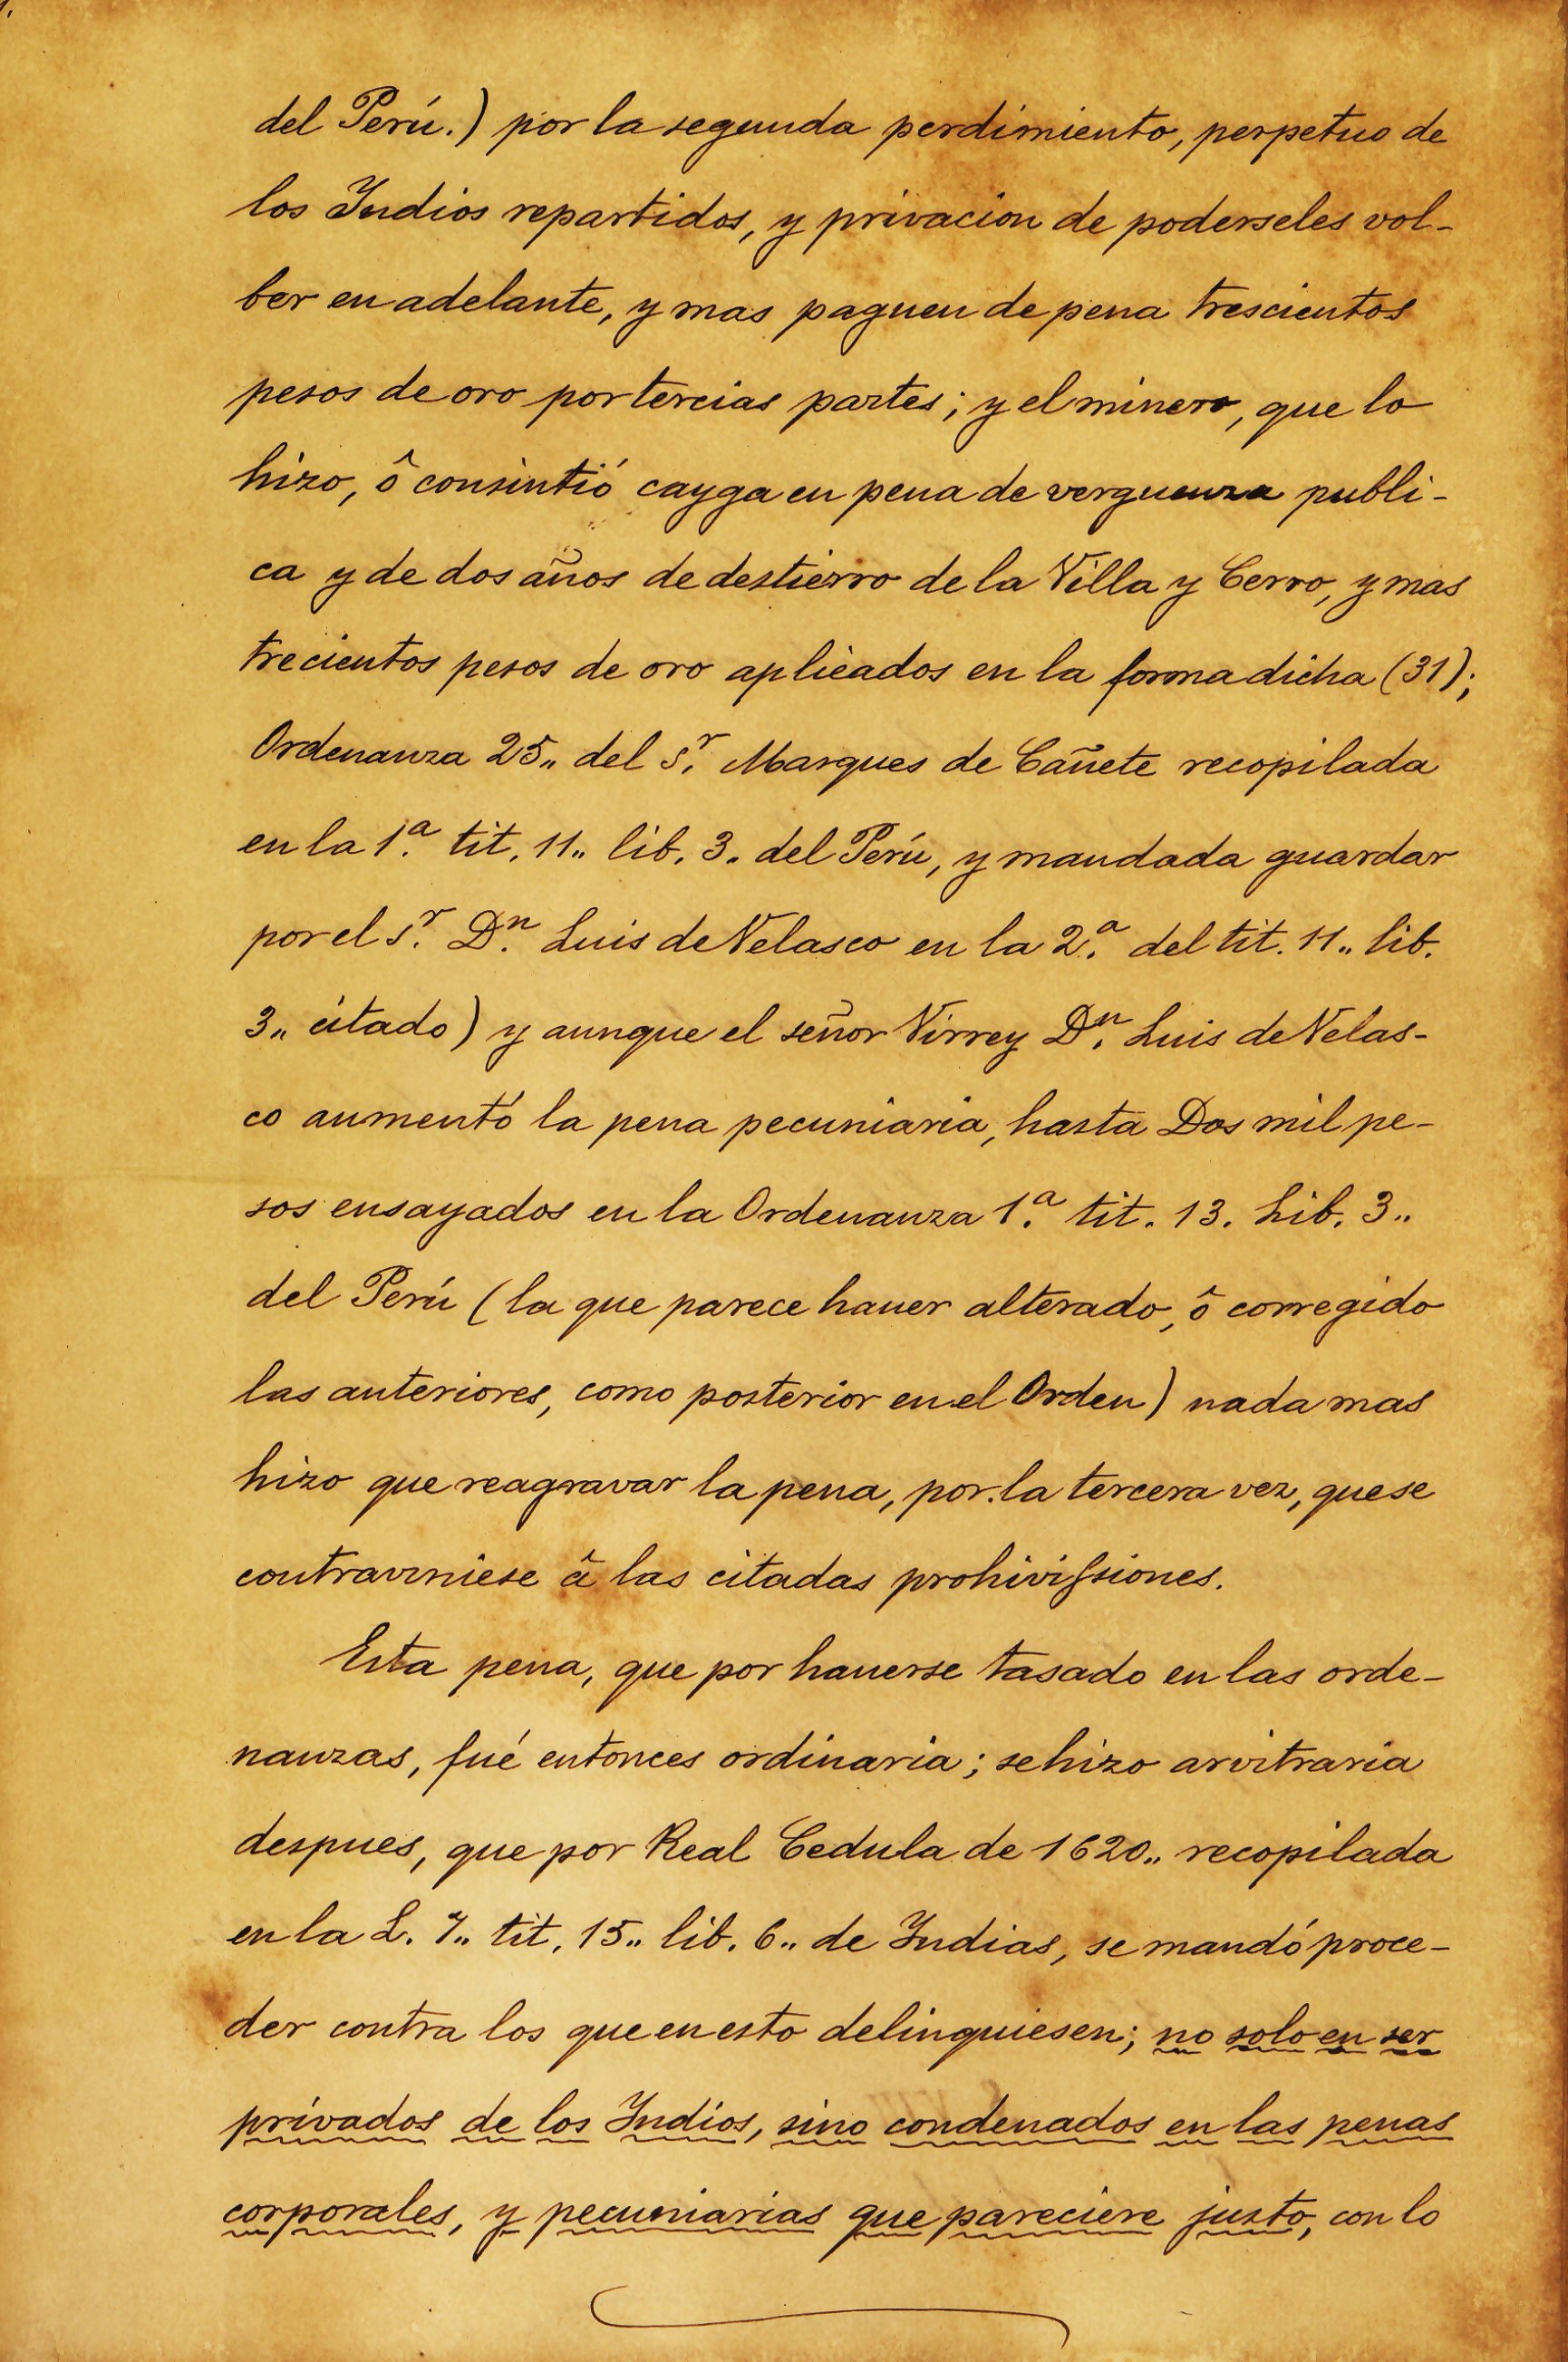 del Perú.) por la segunda perdimiento, perpetuo de
los Indios repartidos, y privacion de poderseles vol-
ber en adelante, y mas paguen de pena trescientos
pesos de oro por tercias partes; y el minero, que lo
hizo, ô consintió cayga en pena de verguenza publi-
ca y de dos años de destierro de la Villa y Cerro, y mas
trecientos pesos de oro aplicados en la forma dicha (31);
Ordenanza 25,, del S.r Marques de Cañete recopilada
en la 1.a tit. 11,, lib. 3. del Perú, y mandada guardar
por el S.r D.n Luis de Velasco en la 2.a del tit. 11,, lib.
3,, citado) y aunque el señor Virrey D.n Luis de Velas-
co aumentó la pena pecuniaria, hasta Dos mil pe-
sos ensayados en la Ordenanza 1.a tit. 13. Lib. 3,,
del Perú (la que parece hauer alterado, ô corregido
las anteriores, como posterior en el Orden) nada mas
hizo que reagravar la pena, por la tercera vez, que se
contraviniese â las citadas prohivissiones.
Esta pena, que por hauerse tasado en las orde-
nanzas, fué entonces ordinaria; se hizo arvitraria
despues, que por Real Cedula de 1620,, recopilada
en la L. 7,, tit. 15,, lib. 6,, de Indias, se mandó proce-
der contra los que en esto delinquiesen; no solo en ser
privados de los Indios, sino condenados en las penas
corporales, y pecuniarias que pareciere justo, con lo